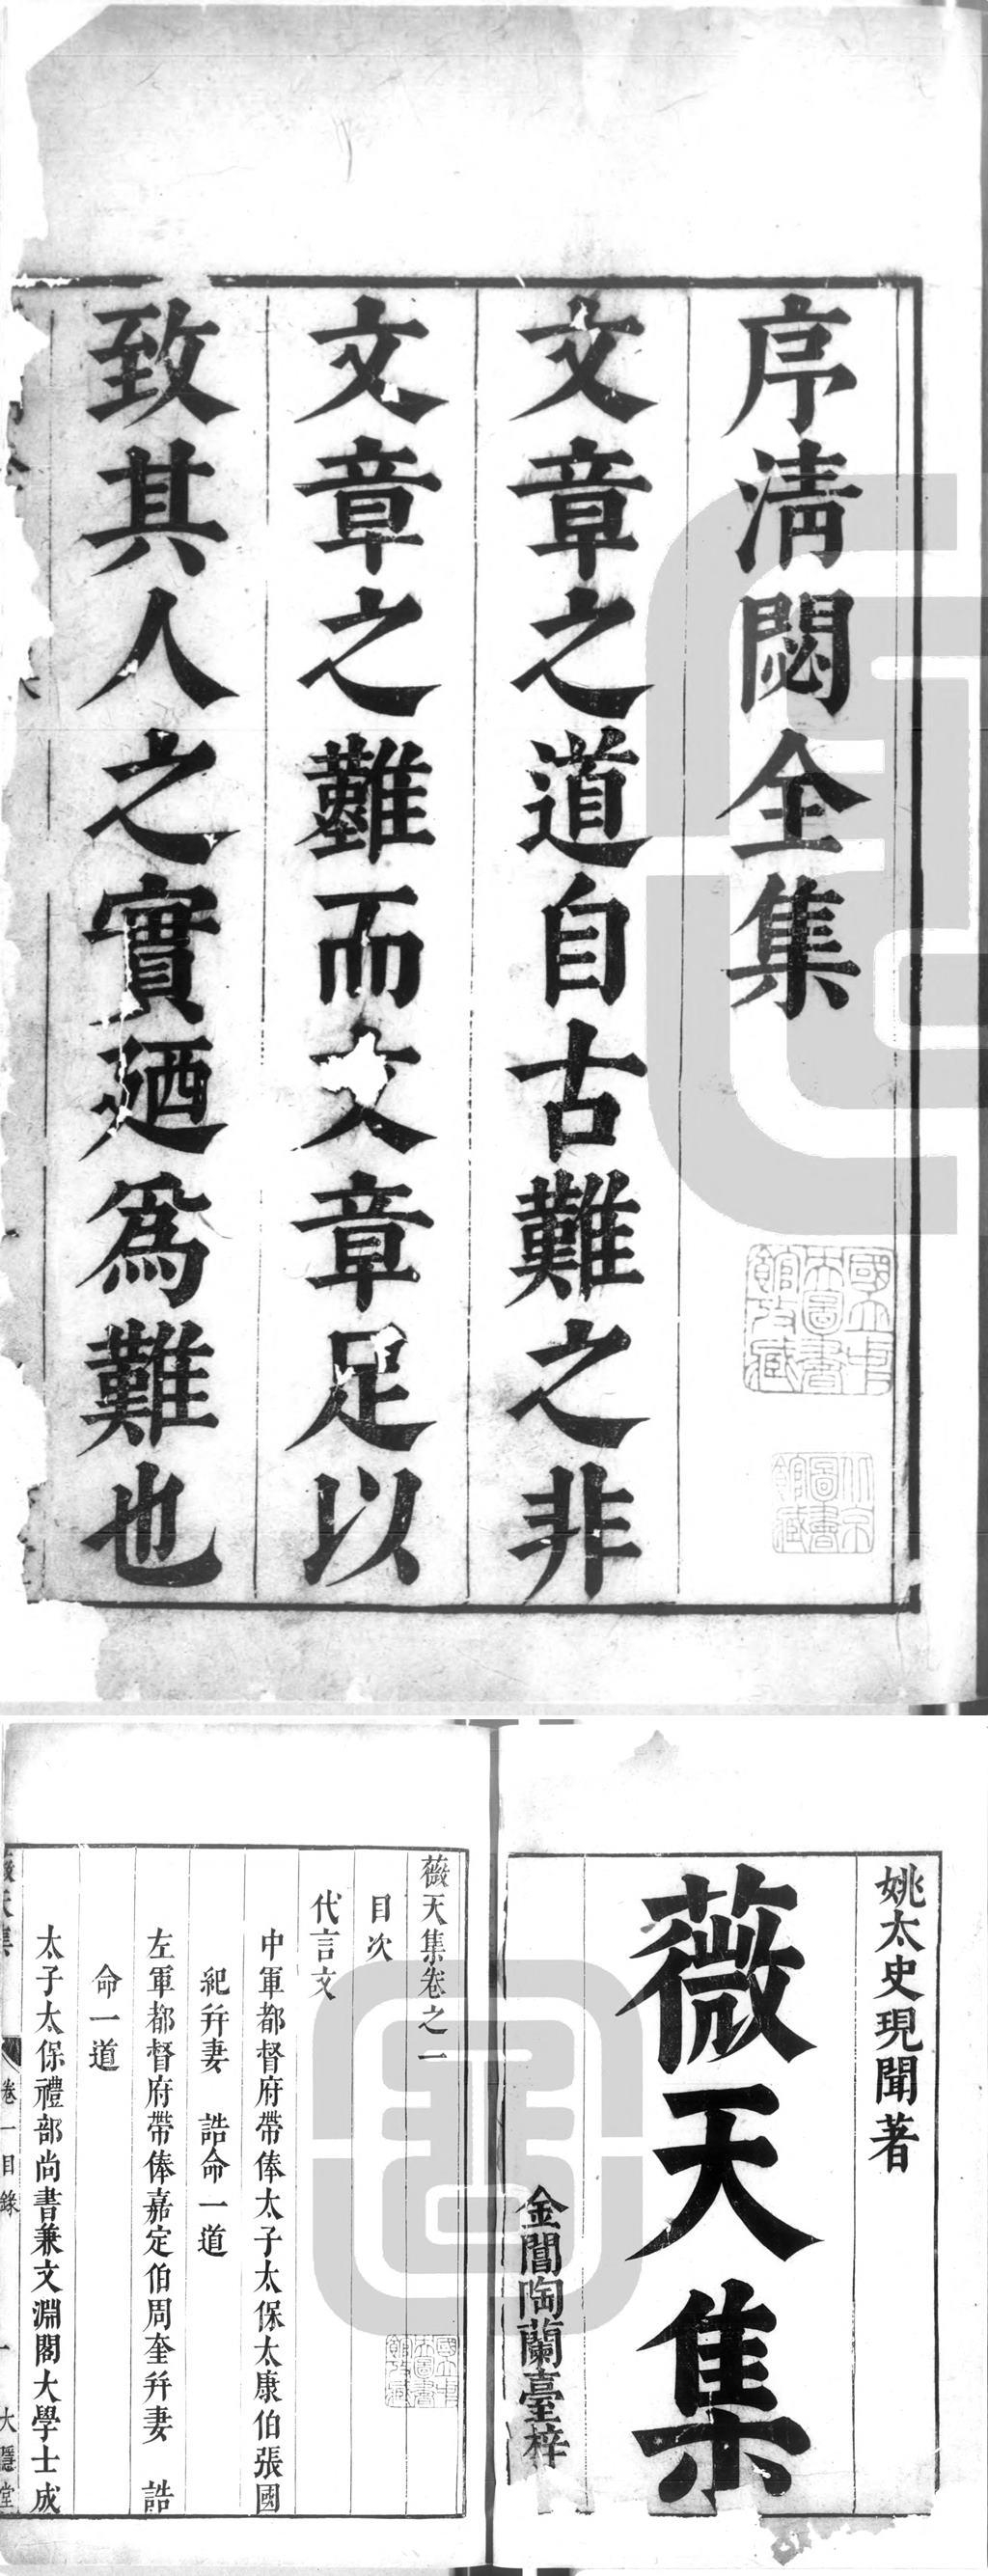 序清閟全集
文章之道自古難之非
文章之難而文章足以
致其人之實廼爲難也
國立中央圖書館收藏
姚太史現聞著
薇天集
金閶陶蘭臺梓
薇天集卷之一
目次
代言文
中軍都督府帶俸太子太保太康伯張國
紀幷妻　誥命一道
左軍都督府帶俸嘉定伯周奎幷妻　誥
命一道
太子太保禮部尚書兼文淵閣大學士成
薇天集　卷一目錄　一　大隱堂